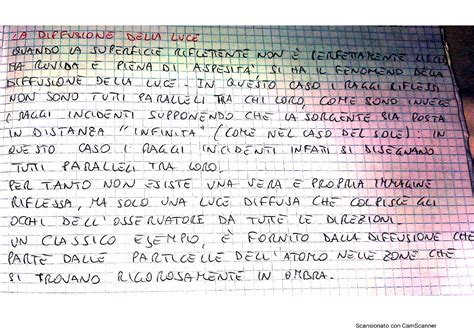 LA DIFFUSIONE DELLA LUCE
QUANDO LA SUPERFICIE RIFLETTENTE NON È PERFETTAMENTE LISCIA
MA RUVIDA E PIENA DI ASPESITA' SI HA IL FENOMENO DELLA
DIFFUSIONE DELLA LUCE. IN QUESTO CASO I RAGGI RIFLESSI
NON SONO TUTTI PARALLELI TRA CHI LORO, COME SONO INVECE
I RAGGI INCIDENTI SUPPONENDO CHE LA SORGENTE SIA POSTA
IN DISTANZA "INFINITA" (COME NEL CASO DEL SOLE). IN
QUESTO CASO I RAGGI INCIDENTI INFATI SI DISEGNANO
TUTTI PARALLELI TRA LORO.
PER TANTO NON ESISTE UNA VERA E PROPRIA IMMAGINE
RIFLESSA, MA SOLO UNA LUCE DIFFUSA CHE COLPISCE GLI
OCCHI DELL'OSSERVATORE DA TUTE LE DIREZIONI
UN CLASSICO ESEMPIO, È FORNITO DALLA DIFFUSIONE CHE
PARTE DALLE PARTICELLE DELL'ATOMO NELLE ZONE CHE
SI TROVANO RIGOROSAMENTE IN OMBRA.
Scansionato con CamScanner